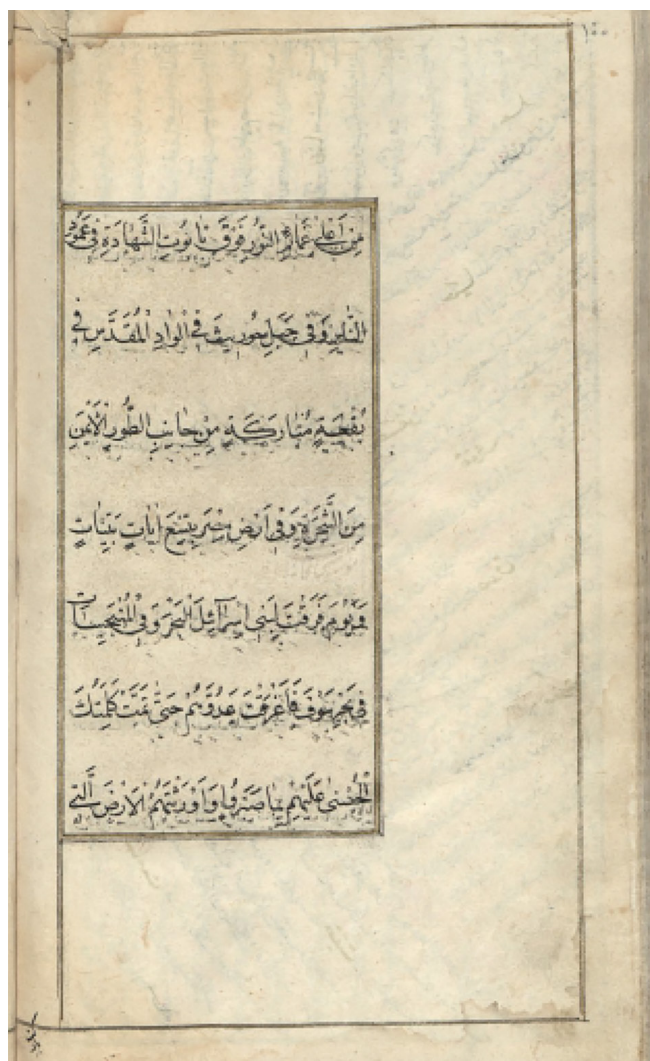 ١٥٥
مِن اَعْلىٰ غَمَائِمِ النّوُرِ فَوْقَ تابُوتِ الشَّهٰادَةِ فِى عَمُودِ
النّٰارِ وَفِى جَبَلِ حُوريثَ فِى الْوادِ الْمُقَدَّسِ فِى
بُقْعَةٍ مُبٰارَكَةٍ مِنْ جٰانِبِ الطُّورِ الْاَيْمَنِ
مِنَ الشَّجَرَةِ وَفِى اَرْضِ مِصْرَ بِتِسْعِ اٰيٰاتٍ بَيِّنٰاتٍ
وَيَوْمَ فَرَقْتَ لِبَنِى اِسْرٰآئِلَ الْبَحْرَ وَفِى الْمُنْبَجِسٰاتِ
فِى بَحْرِ سَوْفَ فَاَغْرَقْتَ عَدُوَّهُمْ حَتّىٰ تَمَّتْ كَلِمَتُكَ
الْحُسْنىٰ عَلَيْهِمْ بِمٰا صَبَرُوا وَاَوْرَثْتَهُمُ الْاَرْضَ الَّتِى